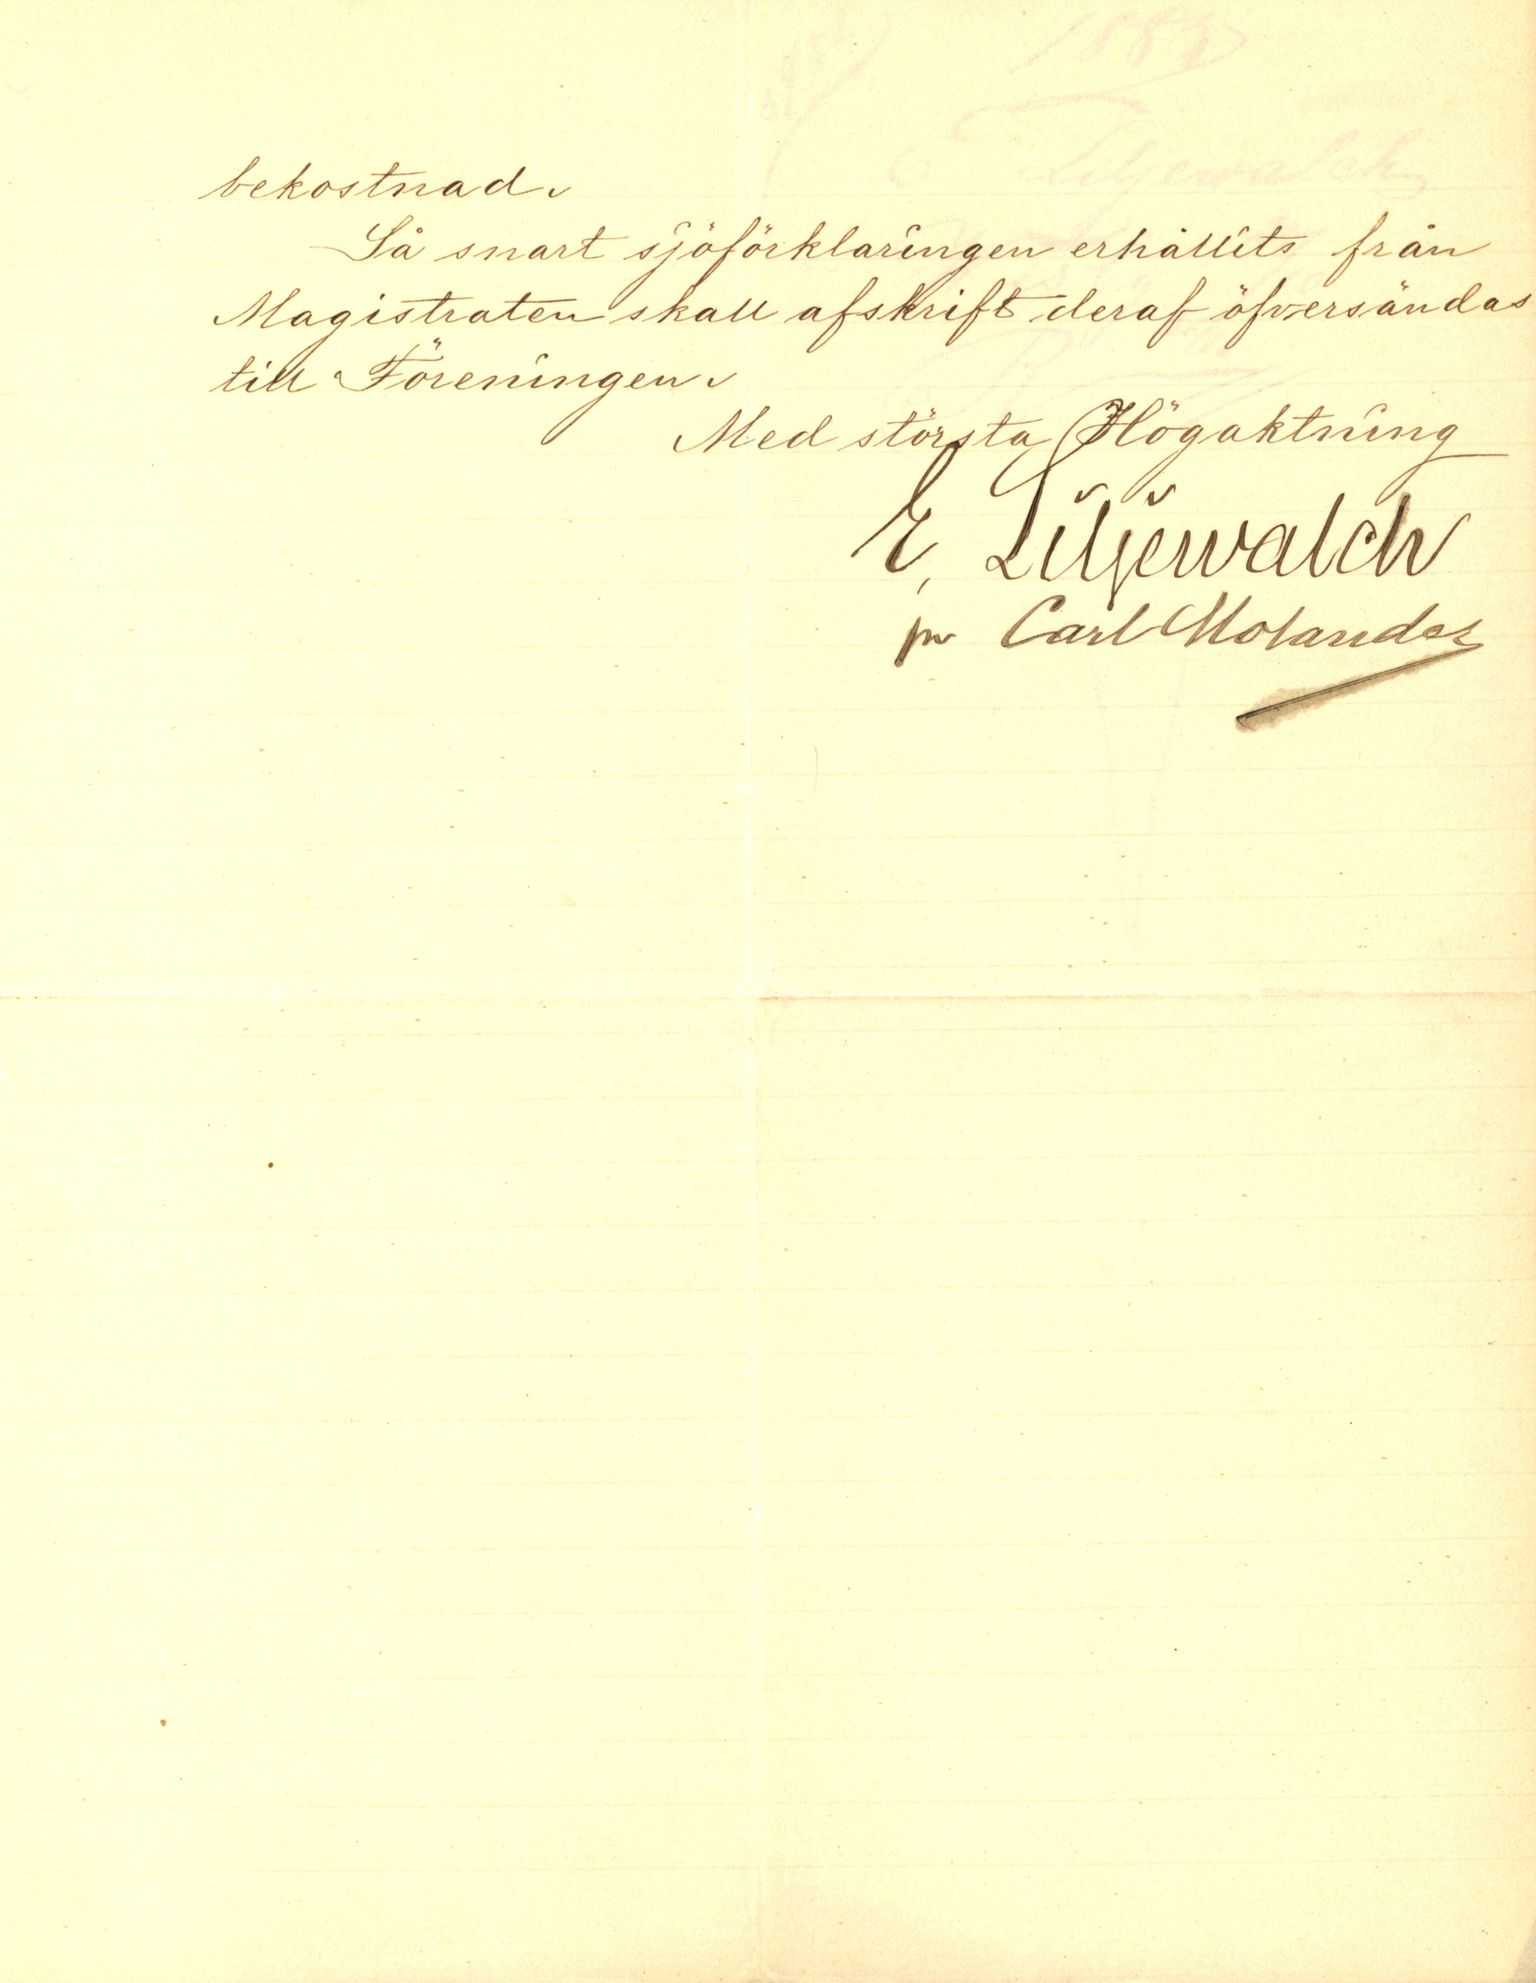 bekostnad.
Så snart sjöförklaringen erhållits från
Magistraten skall afskrift deraf öfversändas
till Föreningen.
Med största Högaktning
E. Liljewalch
pr Carl Molander